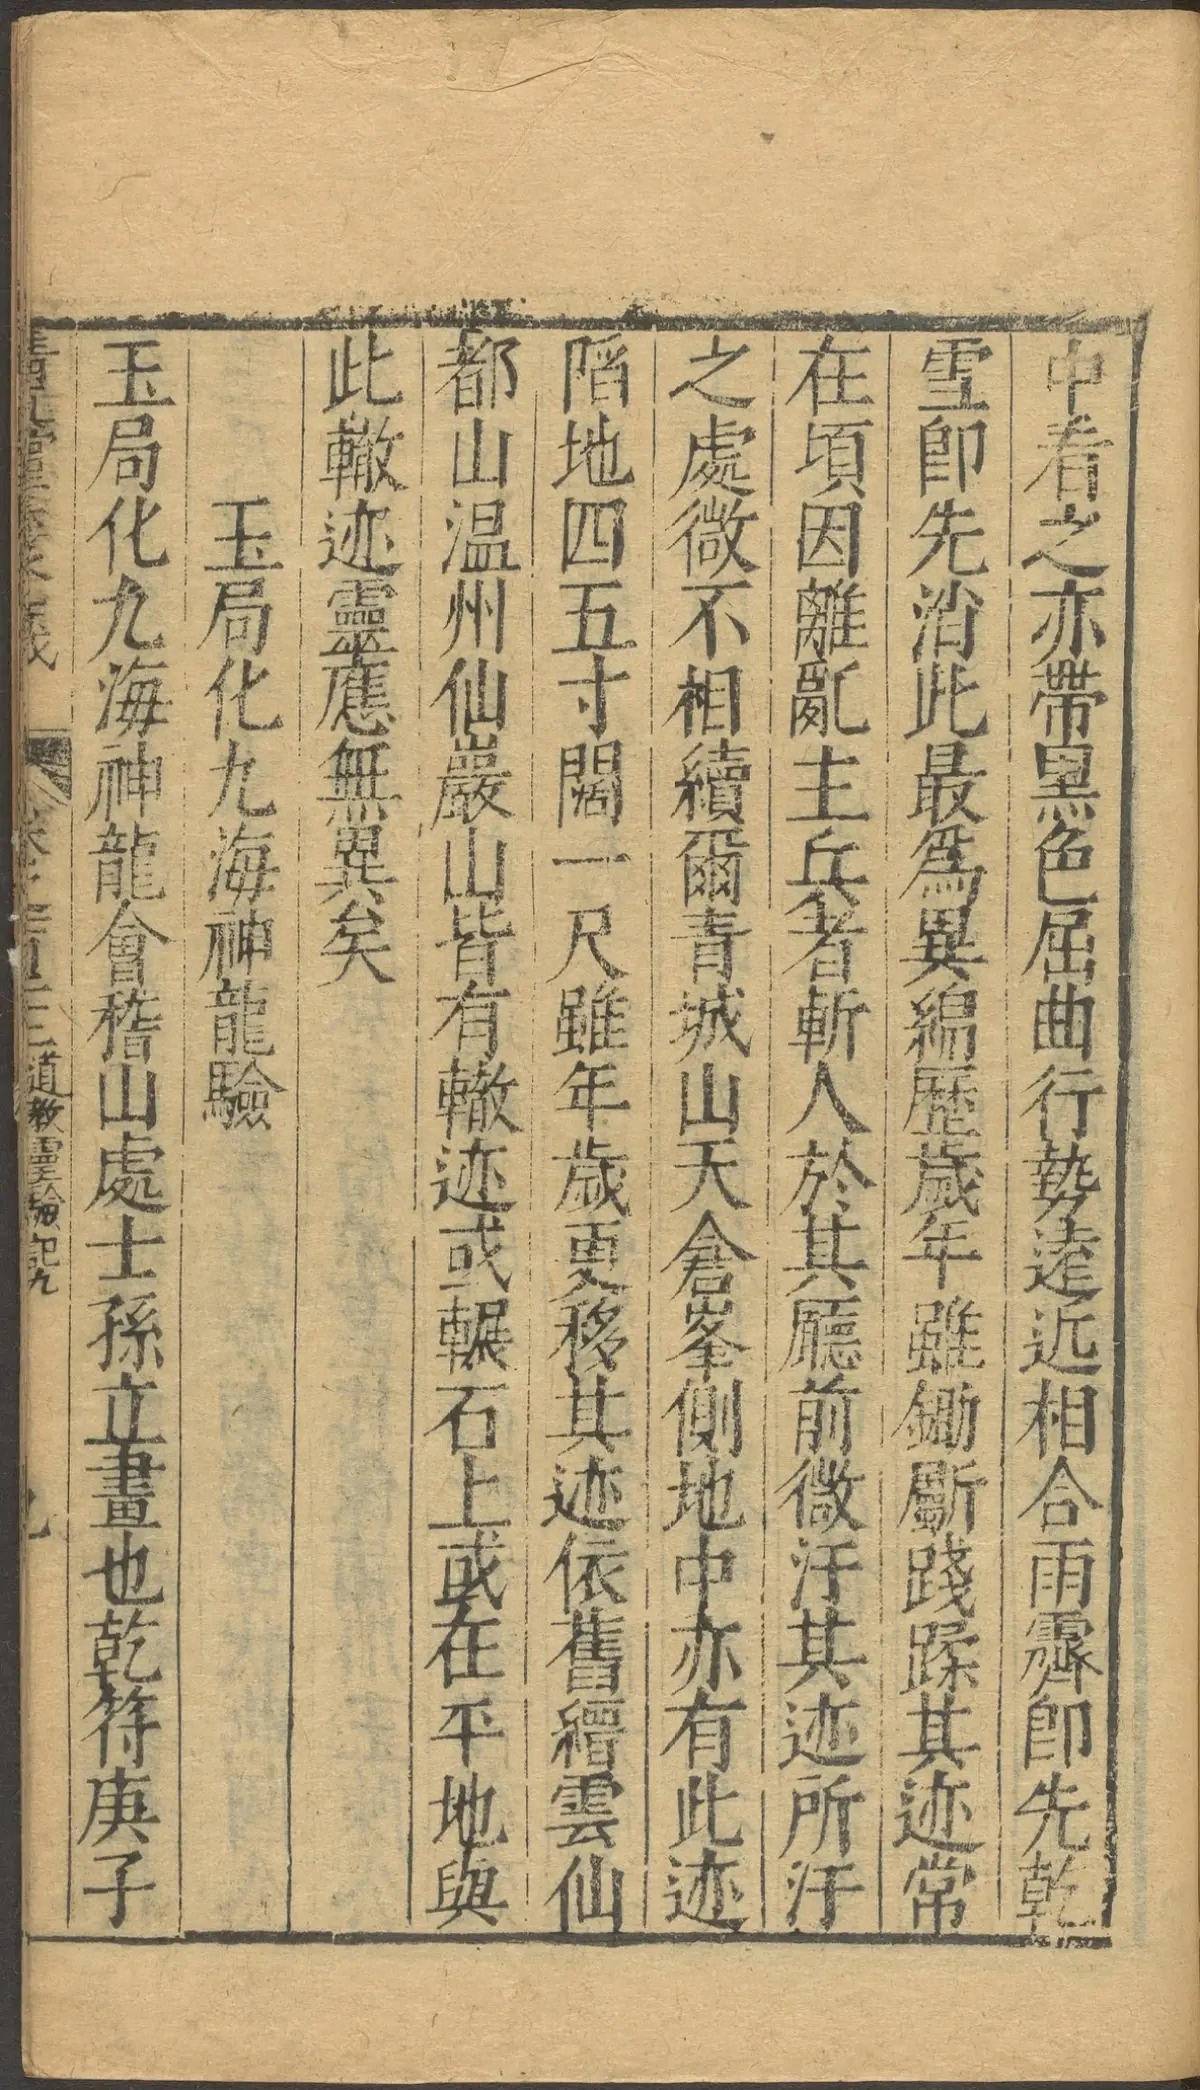 中看之亦帶黑色屈曲行勢遠近相合雨霽即先乾
雪即先消此最爲異綿歷歲年雖鋤斸踐蹂其迹常
在頃因離亂主兵者斬人於其廳前微汙其迹所汙
之處微不相續爾青城山天倉峯側地中亦有此迹
陷地四五寸闊一尺雖年歲更移其迹依舊縉雲仙
都山温州仙巖山皆有轍迹或輾石上或在平地與
此轍迹靈應無異矣
玉局化九海神龍驗
玉局化九海神龍會稽山處士孫立畫也乾符庚子
道教靈驗記九